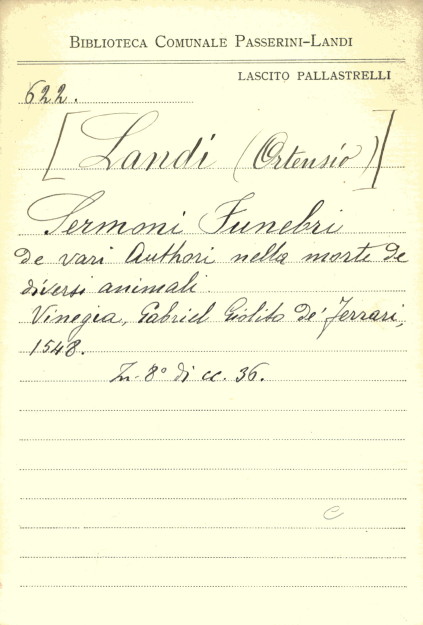 BIBLIOTECA COMUNALE PASSERINI-LANDI
LASCITO PALLASTRELLI
622.
[Landi (Ortensio)]
Sermoni Funebri
de vari Authori nella morte de
diversi animali
Vinegia, Gabriel Giolito de' Ferrari,
1548.
In-8° di cc. 36.
C